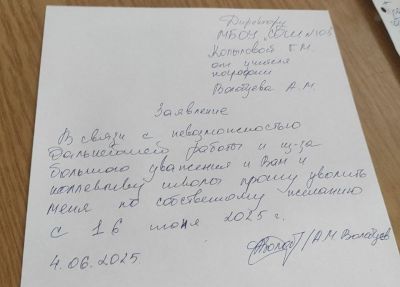 Директору
МБОУ "СОШ №103"
Копыловой Г.М.
от учителя
географии
Волобуева А.М.
Заявление
В связи с невозможностью
дальнейшей работы и из-за
большого уважения к Вам и
коллективу школы прошу уволить
меня по собственному желанию
с 16 июня 2025 г.
4.06.2025 /А.М Волобуев